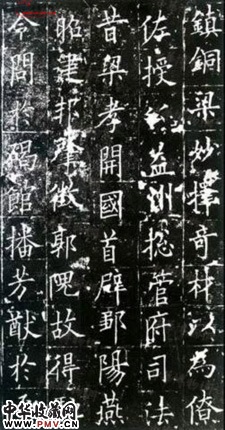 鎮銅梁妙擇奇材以為僚
佐授益州揔管府司法
昔梁孝開國首辟鄒陽燕
昭建邦肇徵郭隗故得
令問於碣館播芳猷於
中华收藏网
WWW.PMV.CN